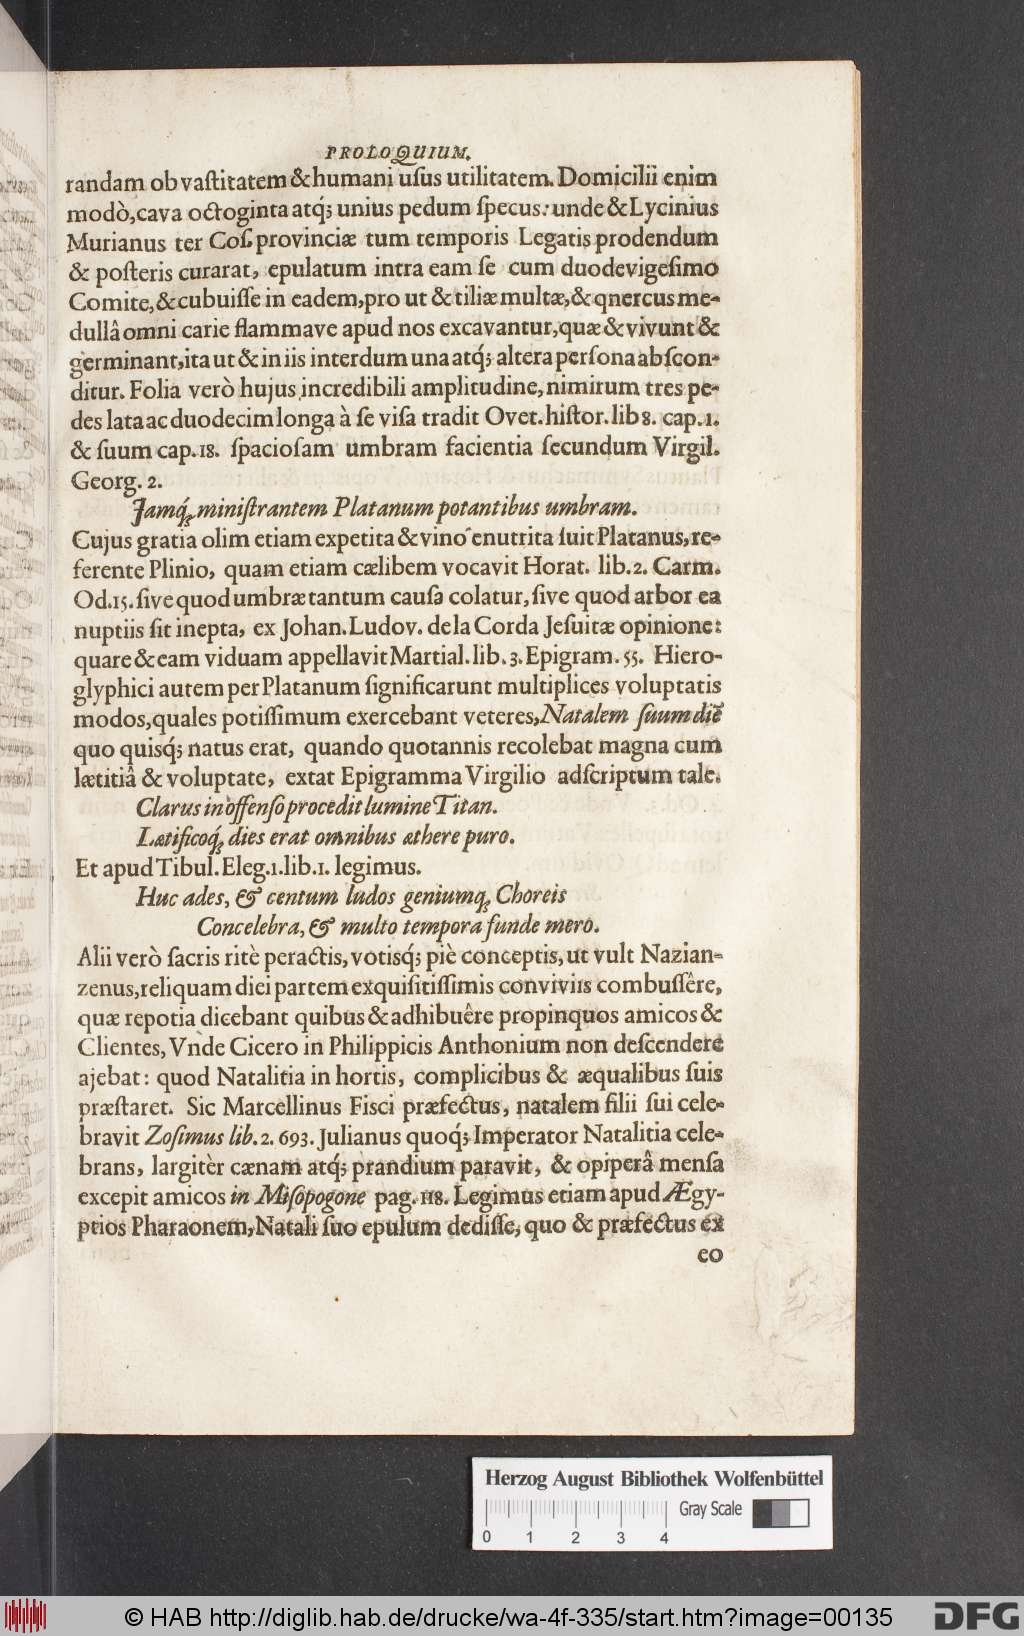 PROLOQUIUM.
randam ob vaſtitatem & humani uſus utilitatem. Domicilii enim
modò, cava octoginta atq́; unius pedum ſpecus: unde & Lycinius
Murianus ter Coſ. provinciæ tum temporis Legatis prodendum
& poſteris curarat, epulatum intra eam ſe cum duodevigeſimo
Comite, & cubuiſſe in eadem, pro ut & tiliæ multæ, & qnercus me-
dullâ omni carie flammave apud nos excavantur, quæ & vivunt &
germinant, ita ut & in iis interdum una atq́; altera perſona abſcon-
ditur. Folia verò hujus incredibili amplitudine, nimirum tres pe-
des lata ac duodecim longa à ſe viſa tradit Ovet. hiſtor. lib 8. cap. 1.
& ſuum cap. 18. ſpacioſam umbram facientia ſecundum Virgil.
Georg. 2.
Jamq́; miniſtrantem Platanum potantibus umbram.
Cujus gratia olim etiam expetita & vino enutrita fuit Platanus, re-
ferente Plinio, quam etiam cælibem vocavit Horat. lib. 2. Carm.
Od. 15. ſive quod umbræ tantum cauſa colatur, ſive quod arbor ea
nuptiis ſit inepta, ex Johan. Ludov. de la Corda Jeſuitæ opinione:
quare & eam viduam appellavit Martial. lib. 3. Epigram. 55. Hiero-
glyphici autem per Platanum ſignificarunt multiplices voluptatis
modos, quales potiſſimum exercebant veteres, Natalem ſuum diē
quo quisq́; natus erat, quando quotannis recolebat magna cum
lætitiâ & voluptate, extat Epigramma Virgilio adſcriptum tale.
Clarus inoffenſo procedit lumine Titan.
Lætificoq́; dies erat omnibus æthere puro.
Et apud Tibul. Eleg. 1. lib. 1. legimus.
Huc ades, & centum ludos geniumq́; Choreis
Concelebra, & multo tempora funde mero.
Alii verò ſacris ritè peractis, votisq́; piè conceptis, ut vult Nazian-
zenus, reliquam diei partem exquiſitiſſimis conviviis combuſſêre,
quæ repotia dicebant quibus & adhibuêre propinquos amicos &
Clientes, Vnde Cicero in Philippicis Anthonium non deſcendere
ajebat: quod Natalitia in hortis, complicibus & æqualibus ſuis
præſtaret. Sic Marcellinus Fisci præfectus, natalem filii ſui cele-
bravit Zoſimus lib. 2. 693. Julianus quoq́; Imperator Natalitia cele-
brans, largitèr cænam atq́; prandium paravit, & opiperâ menſa
excepit amicos in Miſopogone pag. 118. Legimus etiam apud Ægy-
ptios Pharaonem, Natali ſuo epulum dediſſe, quo & præfectus ex
eo
Herzog August Bibliothek Wolfenbüttel
Gray Scale
0 1 2 3 4
© HAB http://diglib.hab.de/drucke/wa-4f-335/start.htm?image=00135
DFG